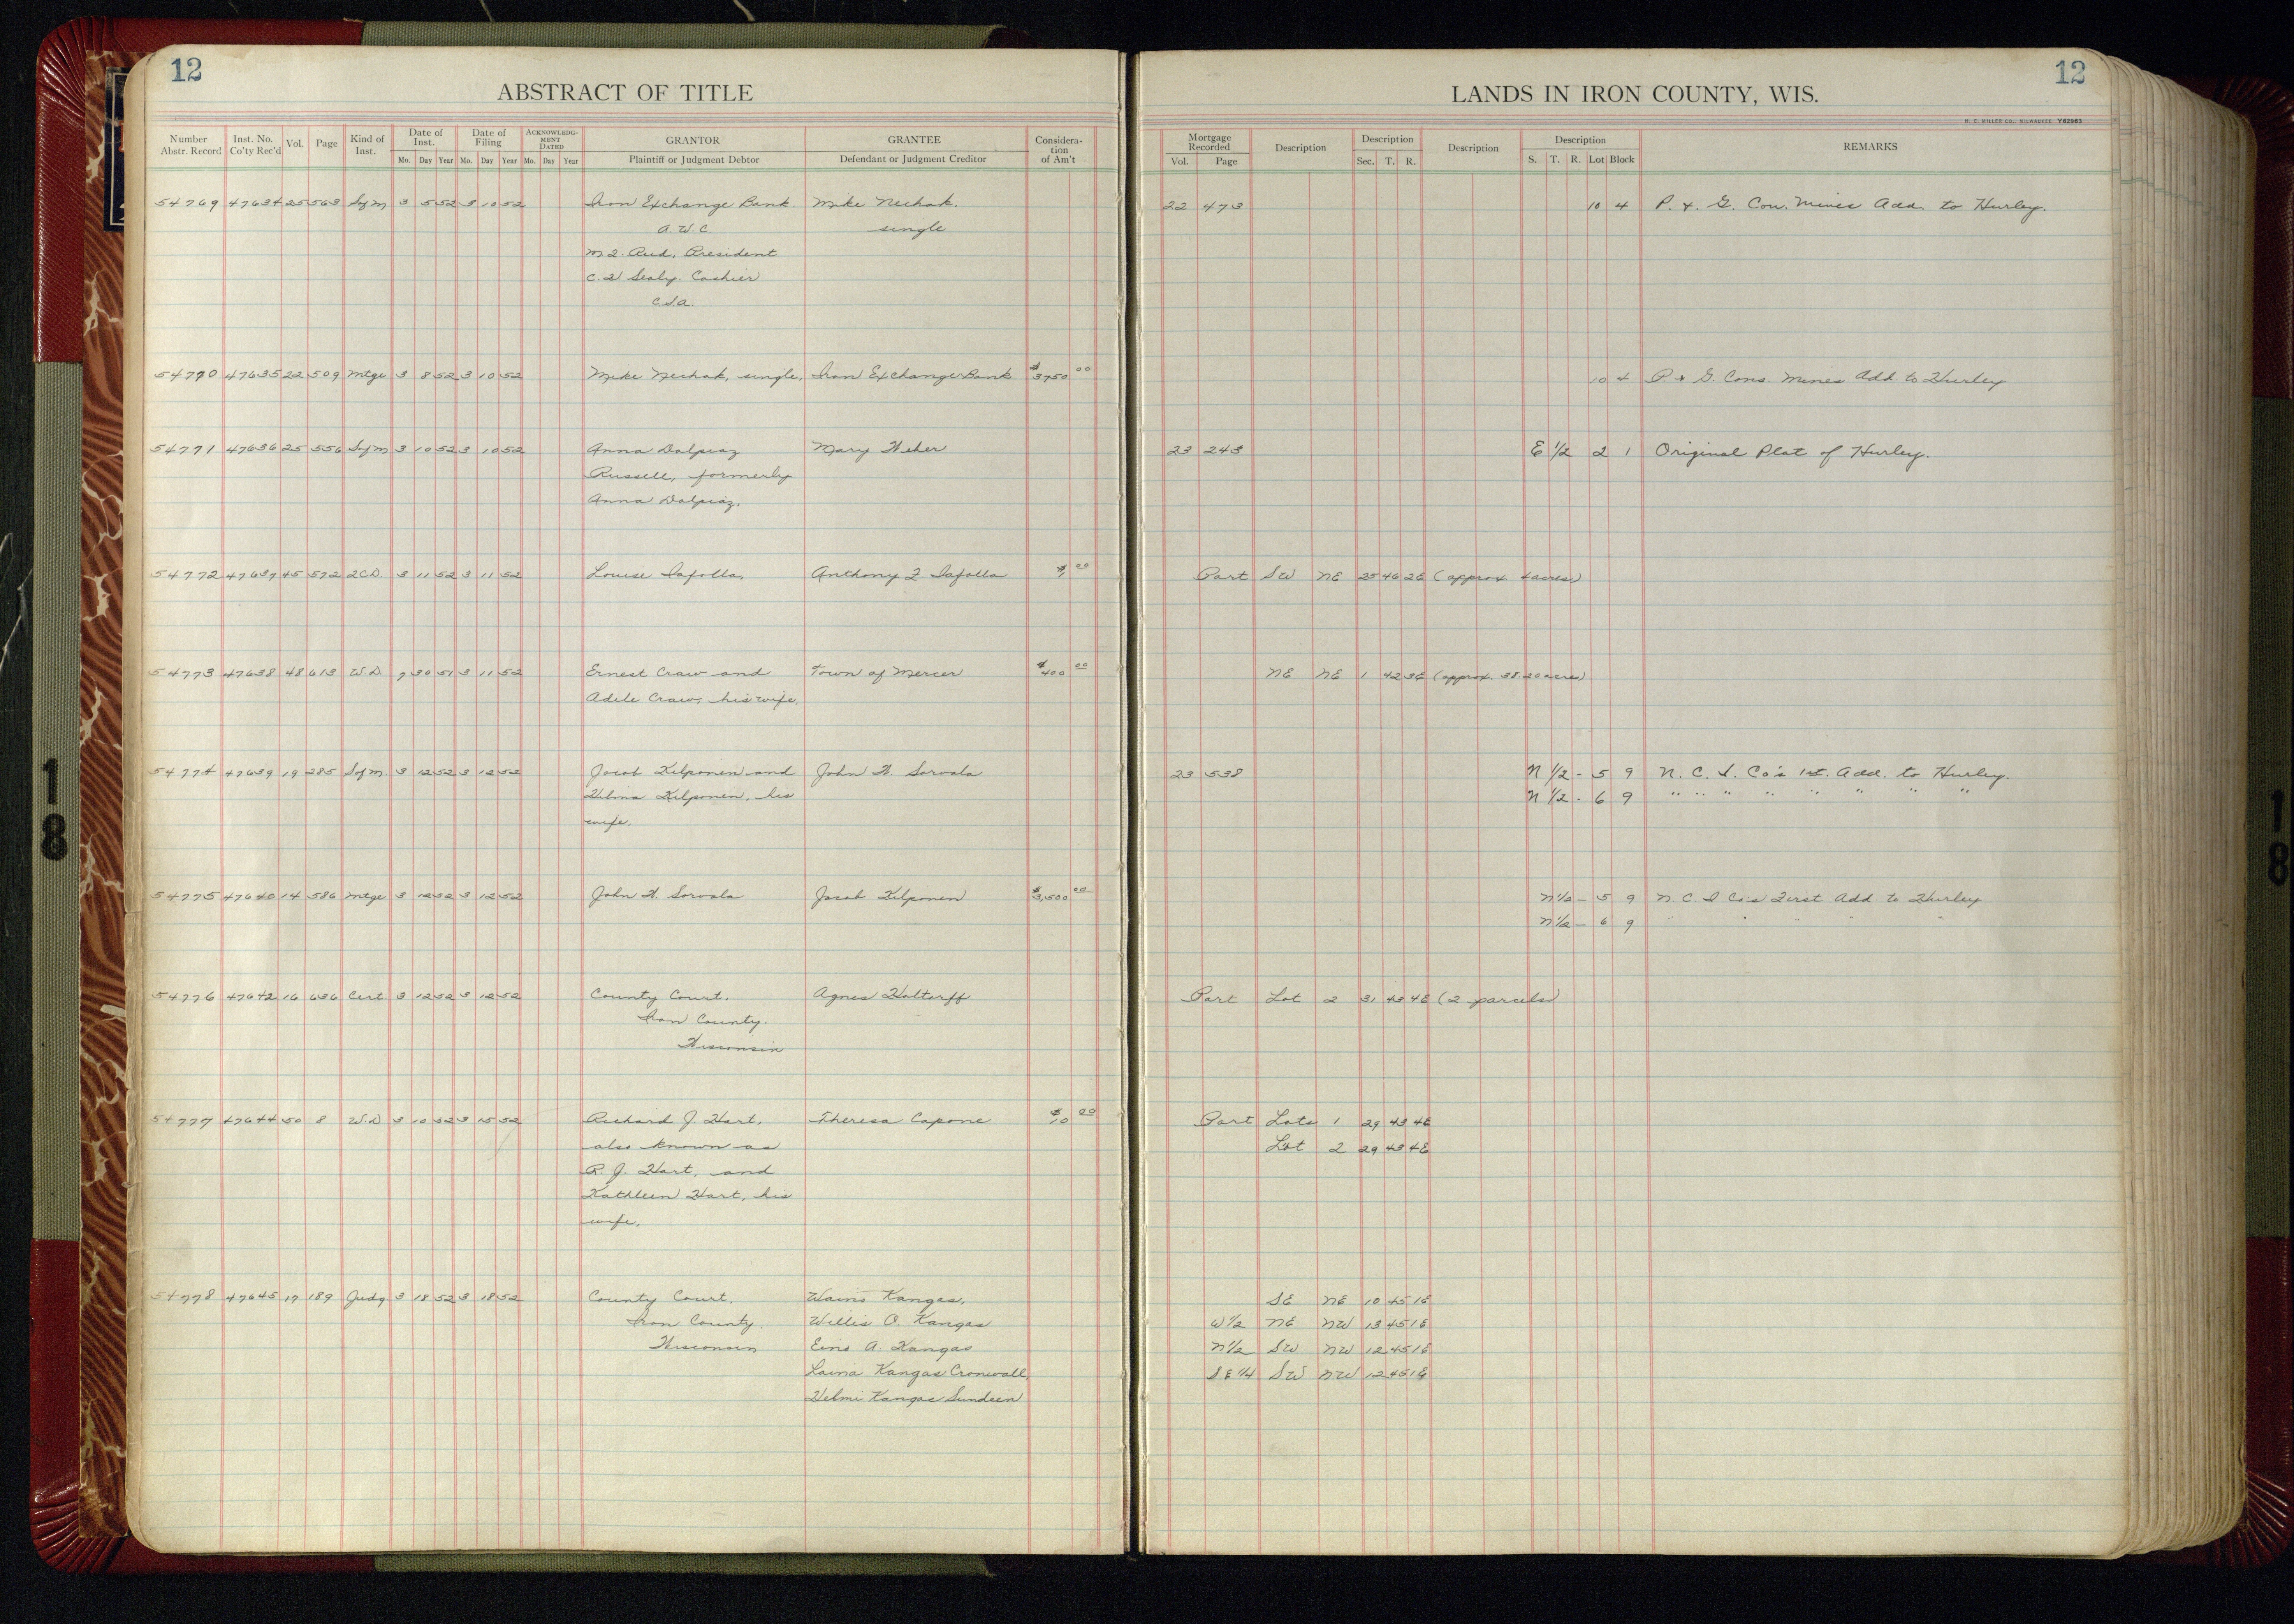 12
ABSTRACT OF TITLE
Number Abstr. Record | Inst. No. Co'ty Rec'd | Vol. | Page | Kind of Inst. | Date of Inst. Mo. Day Year | Date of Filing Mo. Day Year | ACKNOWLEDGMENT DATED Mo. Day Year | GRANTOR Plaintiff or Judgment Debtor | GRANTEE Defendant or Judgment Creditor | Consideration of Am't
54769 47634 25 563 Sofm 3 5 52 3 10 52 Iron Exchange Bank. Mike Nechak.
A.W.C. single
President
Cashier
C.S.A.
54770 47635 22 509 Mtge 3 8 52 3 10 52 Mike Nechak, single, Iron Exchange Bank $3750 00
54771 47636 25 556 Sofm 3 10 52 3 10 52 Anna Dalpiaz Mary Weber
Russell, formerly
Anna Dalpiaz.
54772 47637 45 572 2CD 3 11 52 3 11 52 Louise Iafolla, Anthony F Iafolla $1 00
54773 47638 48 613 W.D 7 30 51 3 11 52 Ernest Craw and Town of Mercer $400 00
Adele Craw, his wife.
54774 47639 19 285 Sofm. 3 12 52 3 12 52 Jacob Kilponen and John W. Sorvala
Hilma Kilponen, his
wife.
54775 47640 14 586 Mtge 3 12 52 3 12 52 John W Sorvala Jacob Kilponen $3,500 00
54776 47642 16 636 Cert 3 12 52 3 12 52 County Court. Agnes Holtorff
Iron County.
Wisconsin
54777 47644 50 8 W.D 3 10 52 3 15 52 Richard J Hart, Theresa Capone $10 00
also known as
R. J. Hart, and
Kathleen Hart, his
wife.
54778 47645 17 189 Judg 3 18 52 3 18 52 County Court. Waino Kangas,
Iron County. Willis O. Kangas
Wisconsin Eino A. Kangas
Laina Kangas Cronwall,
Helmi Kangas Sundeen
12
LANDS IN IRON COUNTY, WIS.
H. C. MILLER CO., MILWAUKEE Y62963
Mortgage Recorded Vol. Page | Description | Description Sec. T. R. | Description | Description S. T. R. Lot Block | REMARKS
22 473 10 4 P. & G. Con. Mines Add. to Hurley.
10 4 P & G. Cons. Mines Add. to Hurley
23 243 E 1/2 2 1 Original Plat of Hurley.
Part SW NE 25 46 2E (approx 4 acres)
NE NE 1 42 3E (approx. 38.20 acres)
23 538 N 1/2 - 5 9 N. C. I. Co's 1st. Add. to Hurley.
N 1/2 - 6 9 " " " " " " " "
N 1/2 - 5 9 N. C. I Co's First Add to Hurley
N 1/2 - 6 9 " " " " "
Part Lot 2 31 43 4E (2 parcels)
Part Lots 1 29 43 4E
Lot 2 29 43 4E
SE NE 10 45 1E
W1/2 NE NW 13 45 1E
N1/2 SW NW 12 45 1E
SE 1/4 SW NW 12 45 1E
18
18